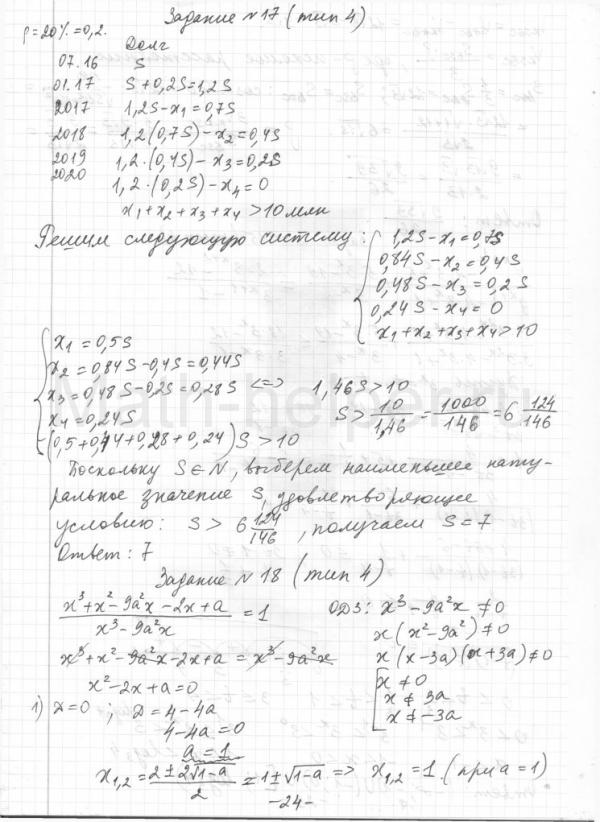 Задание №17 (тип 4)
p=20%=0,2.
Долг
07.16 S
01.17 S+0,2S=1,2S
2017 1,2S-x₁=0,7S
2018 1,2(0,7S)-x₂=0,4S
2019 1,2·(0,4S)-x₃=0,2S
2020 1,2·(0,2S)-x₄=0
x₁+x₂+x₃+x₄>10млн
Решим следующую систему: { 1,2S-x₁=0,7S
0,84S-x₂=0,4S
0,48S-x₃=0,2S
0,24S-x₄=0
x₁+x₂+x₃+x₄>10
{ x₁=0,5S
x₂=0,84S-0,4S=0,44S
x₃=0,48S-0,2S=0,28S <=> 1,46S>10
x₄=0,24S S>10/1,46=1000/146=6 124/146
(0,5+0,44+0,28+0,24)S>10
Поскольку S∈N, выберем наименьшее нату-
ральное значение S, удовлетворяющее
условию: S> 6 124/146, получаем S=7
Ответ: 7
Задание №18 (тип 4)
(x³+x²-9a²x-2x+a)/(x³-9a²x)=1 ОДЗ: x³-9a²x≠0
x(x²-9a²)≠0
x³+x²-9a²x-2x+a=x³-9a²x x(x-3a)(x+3a)≠0
x²-2x+a=0 [ x≠0
x≠3a
x≠-3a
1) D=0; D=4-4a
4-4a=0
a=1
x₁,₂=(2±2√1-a)/2=1±√1-a => x₁,₂=1 (при a=1)
-24-
Math-helper.ru